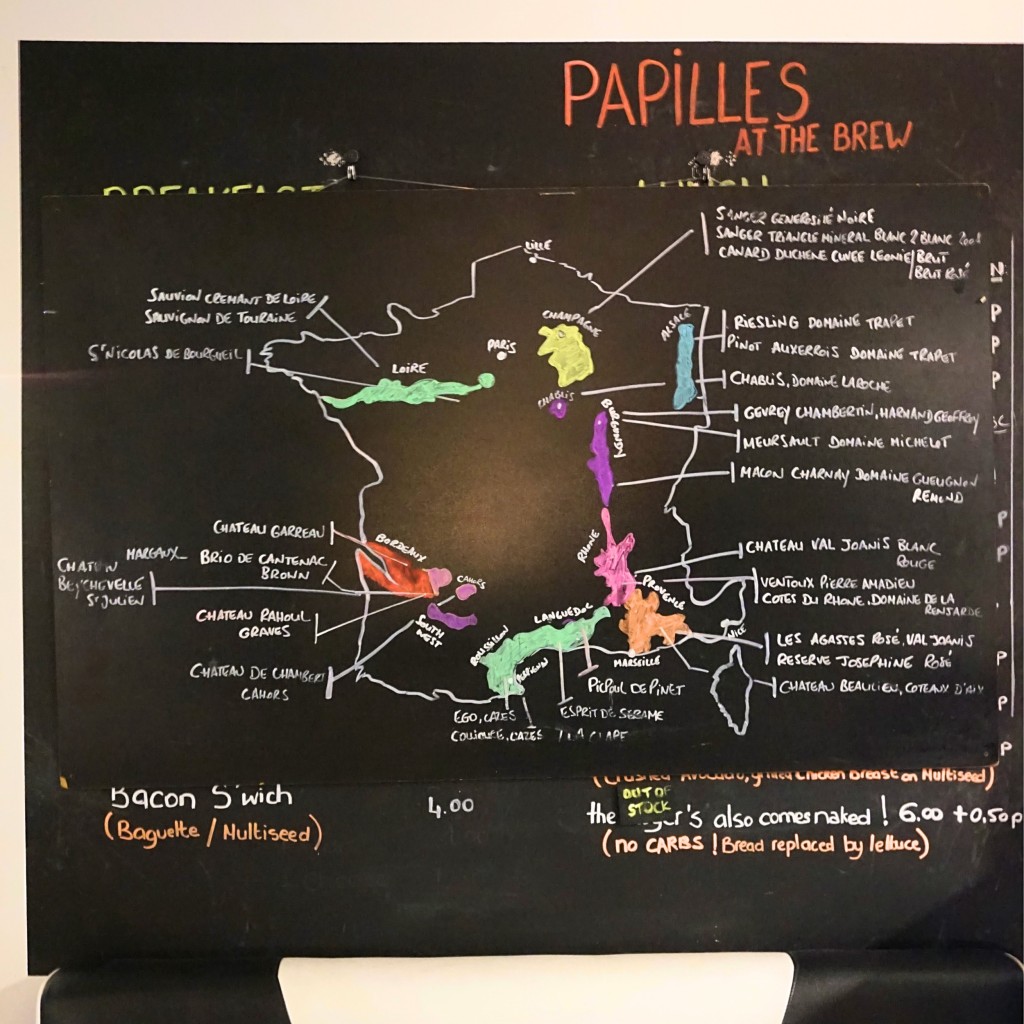 PAPILLES
AT THE BREW
BREAKFAST
LUNCH
SANGER GENEROSITÉ NOIRE
SANGER TRIANGLE MINERAL BLANC 2 BLANC
CANARD DUCHENE CUVEE LEONIE BRUT
BRUT ROSÉ
LILLE
SAUVION CREMANT DE LOIRE
SAUVIGNON DE TOURAINE
ST NICOLAS DE BOURGUEIL
LOIRE
PARIS
CHAMPAGNE
ALSACE
RIESLING DOMAINE TRAPET
PINOT AUXERROIS DOMAINE TRAPET
CHABLIS
CHABLIS, DOMAINE LAROCHE
BURGUNDY
GEVREY CHAMBERTIN, HARMAND GEOFFROY
MEURSAULT DOMAINE MICHELOT
MACON CHARNAY DOMAINE GUEUGNON
REMOND
CHATEAU GARREAU
MARGAUX
BRIO DE CANTENAC
BROWN
CHATEAU
BEYCHEVELLE
ST JULIEN
CHATEAU RAHOUL
GRAVES
CHATEAU DE CHAMBERT
CAHORS
BORDEAUX
CAHORS
SOUTH
WEST
RHONE
CHATEAU VAL JOANIS BLANC
ROUGE
VENTOUX PIERRE AMADIEU
COTES DU RHONE, DOMAINE DE LA
RENJARDE
PROVENCE
NICE
MARSEILLE
LES AGASSES ROSÉ, VAL JOANIS
RESERVE JOSEPHINE ROSÉ
CHATEAU BEAULIEU, COTEAUX D'AIX
LANGUEDOC
ROUSSILLON
PICPOUL DE PINET
EGO, CAZES
ESPRIT DE SERAME
LA CLAPE
N
P
P
P
P
P
P
P
P
(Crushed Avocado, grilled Chicken Breast on Multiseed)
Bacon S'wich
4.00
(Baguette / Multiseed)
OUT OF
STOCK
the
also comes naked ! 6.00 +0.50p
(no CARBS ! Bread replaced by lettuce)